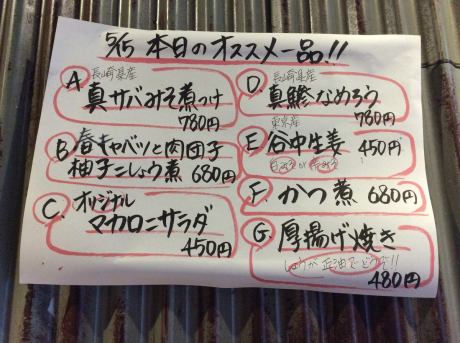 5/15 本日のオススメ一品!!
A 長崎県産
真サバみそ煮つけ
780円
B 春キャベツと肉団子
柚子こしょう煮 680円
C. オリジナル
マカロニサラダ
450円
D. 長崎県産
真鯵なめろう
780円
東京産
E 谷中生姜 450円
F. かつ煮 680円
G 厚揚げ焼き
しょうが正油でどうぞ!!
480円